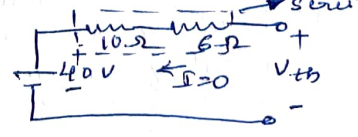 10Ω 6Ω +
+
40V I=0 Vth
-
-